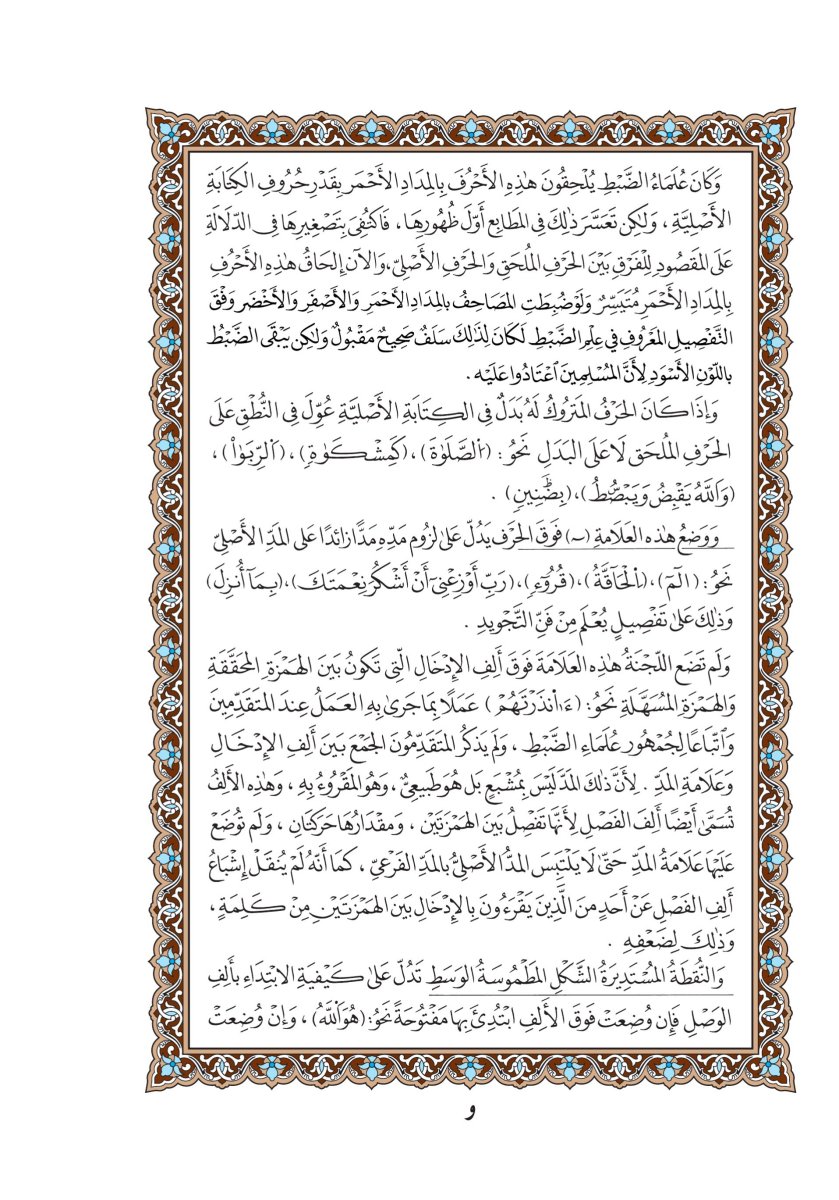 وَكَانَ عُلَمَاءُ الضَّبْطِ يُلْحِقُونَ هَٰذِهِ الأَحْرُفَ بِالمِدَادِ الأَحْمَرِ بِقَدْرِ حُرُوفِ الكِتَابَةِ
الأَصْلِيَّةِ ، وَلَٰكِن تَعَسَّرَ ذَٰلِكَ فِي المَطَابِعِ أَوَّلَ ظُهُورِهَا ، فَاكْتُفِيَ بِتَصْغِيرِهَا فِي الدَّلَالَةِ
عَلَى المَقْصُودِ لِلْفَرْقِ بَيْنَ الحَرْفِ المُلْحَقِ وَالحَرْفِ الأَصْلِيِّ،وَالآنَ إِلحَاقُ هَٰذِهِ الأَحْرُفِ
بِالمِدَادِ الأَحْمَرِ مُتَيَسِّرٌ وَلَوْ ضُبِطَتِ المَصَاحِفُ بِالمِدَادِ الأَحْمَرِ وَالأَصْفَرِ وَالأَخْضَرِ وَفْقَ
التَّفْصِيلِ المَعْرُوفِ فِي عِلْمِ الضَّبْطِ لَكَانَ لِذَٰلِكَ سَلَفٌ صَحِيحٌ مَقْبُولٌ وَلَٰكِن يَبْقَى الضَّبْطُ
بِاللَّوْنِ الأَسْوَدِ لِأَنَّ المُسْلِمِينَ اعْتَادُوا عَلَيْهِ .
وَإِذَا كَانَ الحَرْفُ المَتْرُوكُ لَهُ بَدَلٌ فِي الكِتَابَةِ الأَصْلِيَّةِ عُوِّلَ فِي النُّطْقِ عَلَى
الحَرْفِ المُلْحَقِ لَا عَلَى البَدَلِ نَحْوُ : (اَلصَّلَوٰةَ) ، (كَمِشْكَوٰةٍ) ، (اَلرِّبَوٰاْ) ،
(وَاَللَّهُ يَقْبِضُ وَيَبْصُۜطُ)، (بِضَنِينٍ) .
وَوَضْعُ هَٰذِهِ العَلَامَةِ (~) فَوْقَ الحَرْفِ يَدُلُّ عَلَىٰ لُزُومِ مَدِّهِ مَدًّا زَائِدًا عَلَى المَدِّ الأَصْلِيِّ
نَحْوُ : (الٓمٓ)، (اَلْحَآقَّةُ)، (قُرُوٓءٖ)، (رَبِّ أَوْزِعْنِيٓ أَنْ أَشْكُرَ نِعْمَتَكَ)، (بِمَآ أُنزِلَ)
وَذَٰلِكَ عَلَىٰ تَفْصِيلٍ يُعْلَمُ مِنْ فَنِّ التَّجْوِيدِ .
وَلَم تَضَعِ اللَّجْنَةُ هَٰذِهِ العَلَامَةَ فَوْقَ أَلِفِ الإِدْخَالِ الَّتِي تَكُونُ بَيْنَ الهَمْزَةِ المُحَقَّقَةِ
وَالهَمْزَةِ المُسَهَّلَةِ نَحْوُ : (ءَاٰنذَرْتَهُمْ) عَمَلًا بِمَا جَرَىٰ بِهِ العَمَلُ عِندَ المُتَقَدِّمِينَ
وَاتِّبَاعًا لِجُمْهُورِ عُلَمَاءِ الضَّبْطِ ، وَلَمْ يَذْكُرِ المُتَقَدِّمُونَ الجَمْعَ بَيْنَ أَلِفِ الإِدْخَالِ
وَعَلَامَةِ المَدِّ . لِأَنَّ ذَٰلِكَ المَدَّ لَيْسَ بِمُشْبَعٍ بَل هُوَ طَبِيعِيٌّ ، وَهُوَ المَقْرُوءُ بِهِ ، وَهَٰذِهِ الأَلِفُ
تُسَمَّىٰ أَيْضًا أَلِفَ الفَصْلِ لِأَنَّهَا تَفْصِلُ بَيْنَ الهَمْزَتَيْنِ ، وَمِقْدَارُهَا حَرَكَتَانِ ، وَلَم تُوضَعْ
عَلَيْهَا عَلَامَةُ المَدِّ حَتَّىٰ لَا يَلْتَبِسَ المَدُّ الأَصْلِيُّ بِالمَدِّ الفَرْعِيِّ ، كَمَا أَنَّهُ لَمْ يُنقَلْ إِشْبَاعُ
أَلِفِ الفَصْلِ عَنْ أَحَدٍ مِنَ الَّذِينَ يَقْرَءُونَ بِالإِدْخَالِ بَيْنَ الهَمْزَتَيْنِ مِنْ كَلِمَةٍ ،
وَذَٰلِكَ لِضَعْفِهِ .
وَالنُّقْطَةُ المُسْتَدِيرَةُ الشَّكْلِ المَطْمُوسَةُ الوَسَطِ تَدُلُّ عَلَىٰ كَيْفِيَةِ الابْتِدَاءِ بِأَلِفِ
الوَصْلِ فَإِن وُضِعَتْ فَوْقَ الأَلِفِ ابْتُدِئَ بِهَا مَفْتُوحَةً نَحْوُ : (هُوَ اَللَّهُ) ، وَإِنْ وُضِعَتْ
و